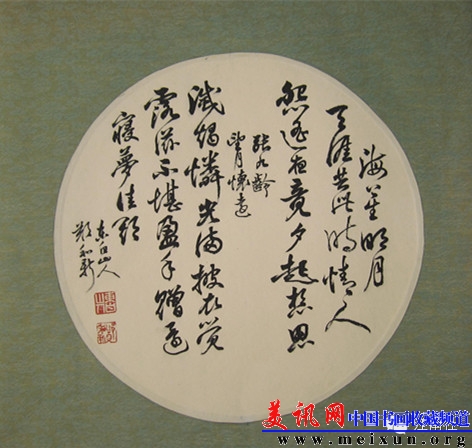 海上生明月
天涯共此時情人
怨遥夜竟夕起相思
張九齡
望月懷遠
滅燭憐光滿披衣覺
露滋不堪盈手贈還
寢夢佳期
東白山人
美讯网 中国书画收藏频道
www.meixun.org